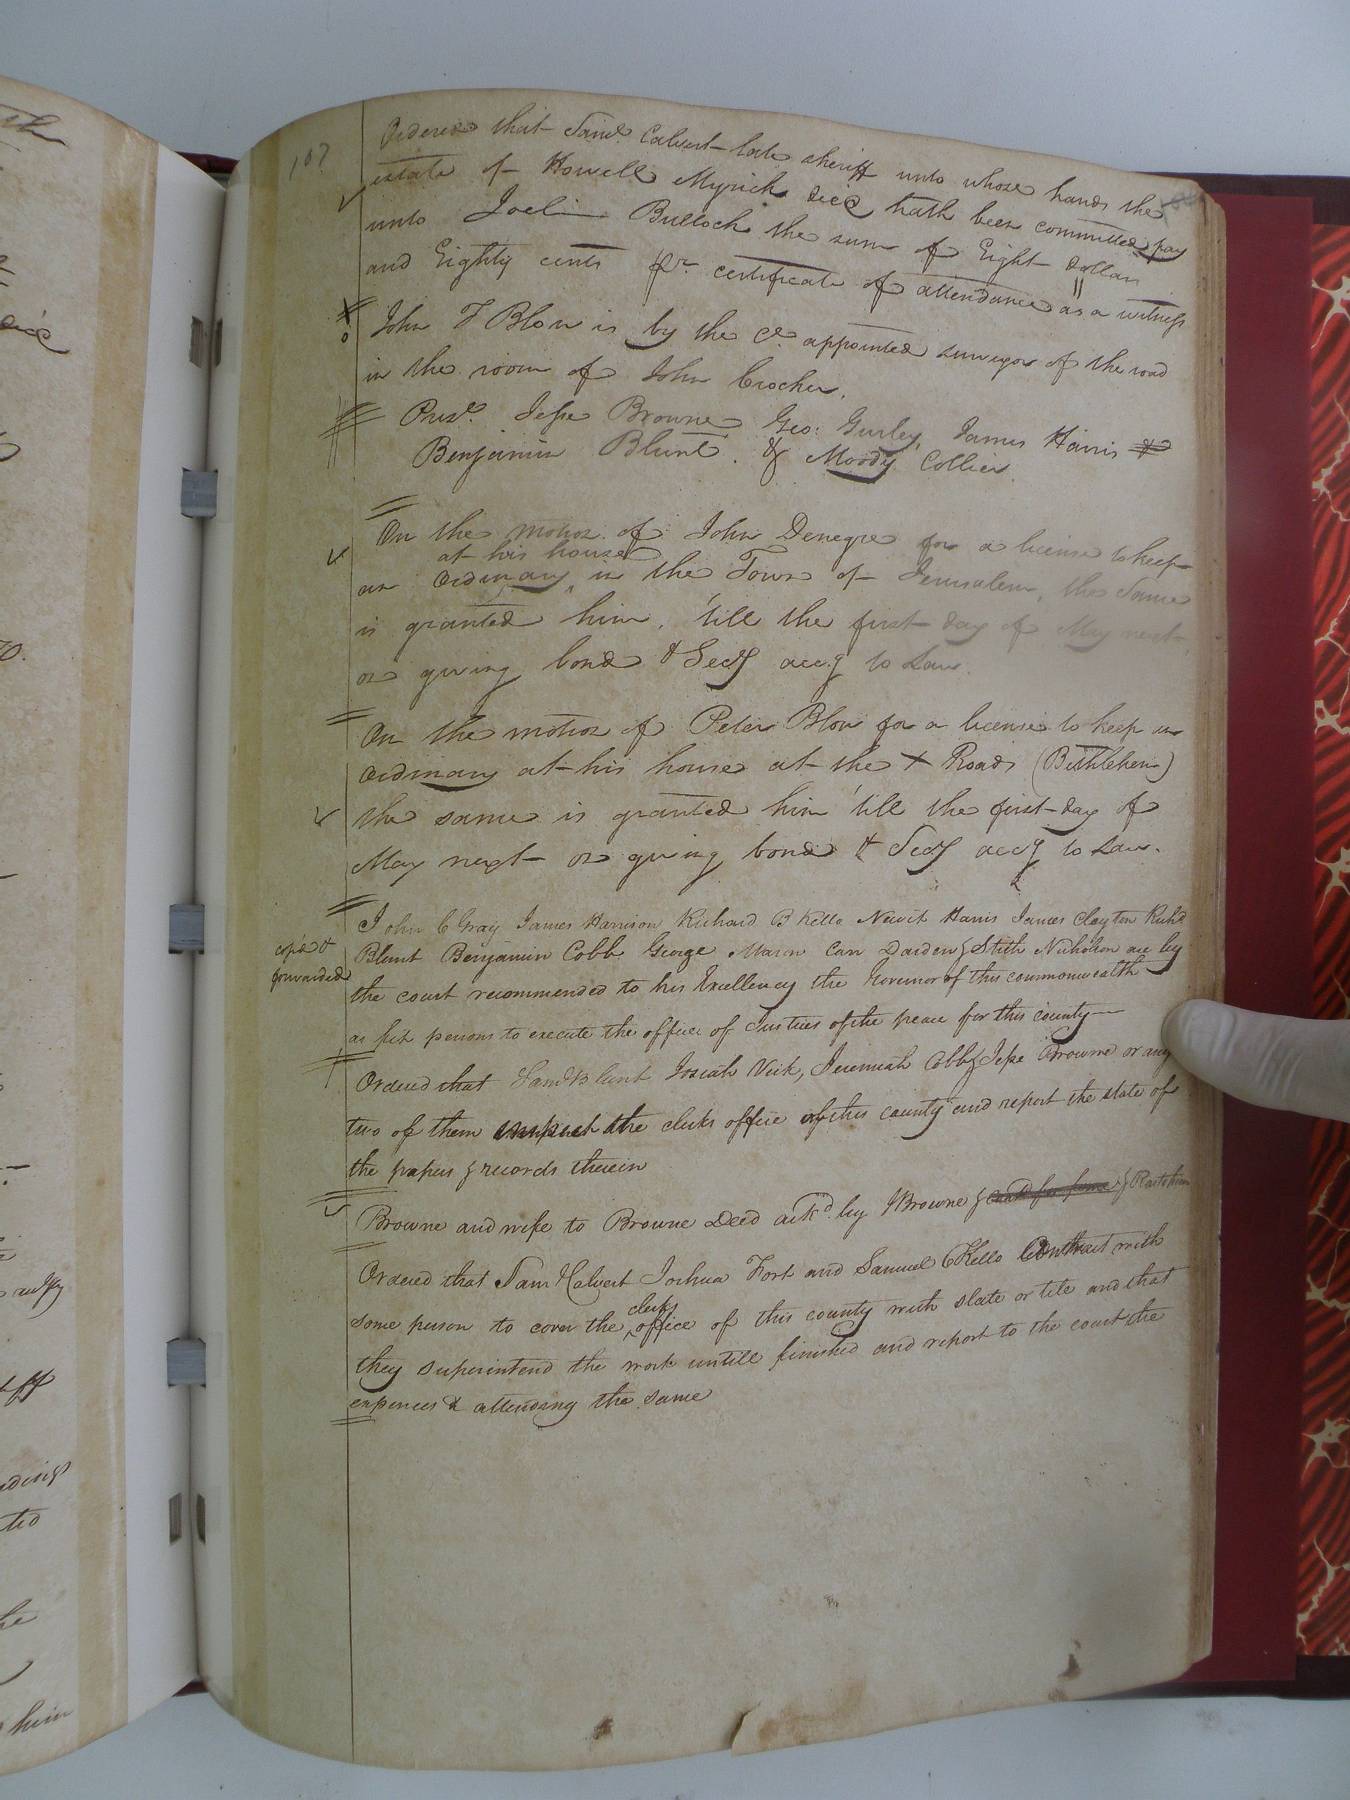 107
Ordered that Saml Calvert late sheriff unto whose hands the
estate of Howell Myrick decd hath been committed pay
unto Joel Bulloch the sum of Eight dollars
and Eighty cents pr certificate of attendance as a witness
John T Blow is by the Ct appointed surveyor of the road
in the room of John Crocker.
Prest. Jesse Browne Geo: Gurley, James Harris &
Benjamin Blunt. & Moody Collier.
On the motion of John Denegre for a license to keep
at his house
an Ordinary in the Town of Jerusalem, the Same
is granted him, 'till the first day of May next
on giving bond & Secy accg to Law.
On the motion of Peter Blow for a license to keep an
Ordinary at his house at the X Roads (Bethlehem)
the same is granted him 'till the first day of
May next on giving bond & Secy accg to Law.
John C Gray James Harrison Richard B Kello Newit Harris James Clayton Richd
copied &
forwarded
Blunt Benjamin Cobb George Mason Carr Darden & Stith Nicholson are by
the court recommended to his Excellency the Governor of this commonwealth
as fit persons to execute the office of Justices of the peace for this county
Ordered that Saml Blunt Josiah Vick, Jeremiah Cobb & Jesse Browne or any
two of them inspect the clerks office of this county and report the state of
the papers & records therein
Browne and wife to Browne Deed ackd. by J Browne &
Ordered that Saml Calvert Joshua Fort and Samuel Kello Contract with
clerks
some person to cover the office of this county with slate or tile and that
they superintend the work untill finished and report to the court the
expences & attending the same